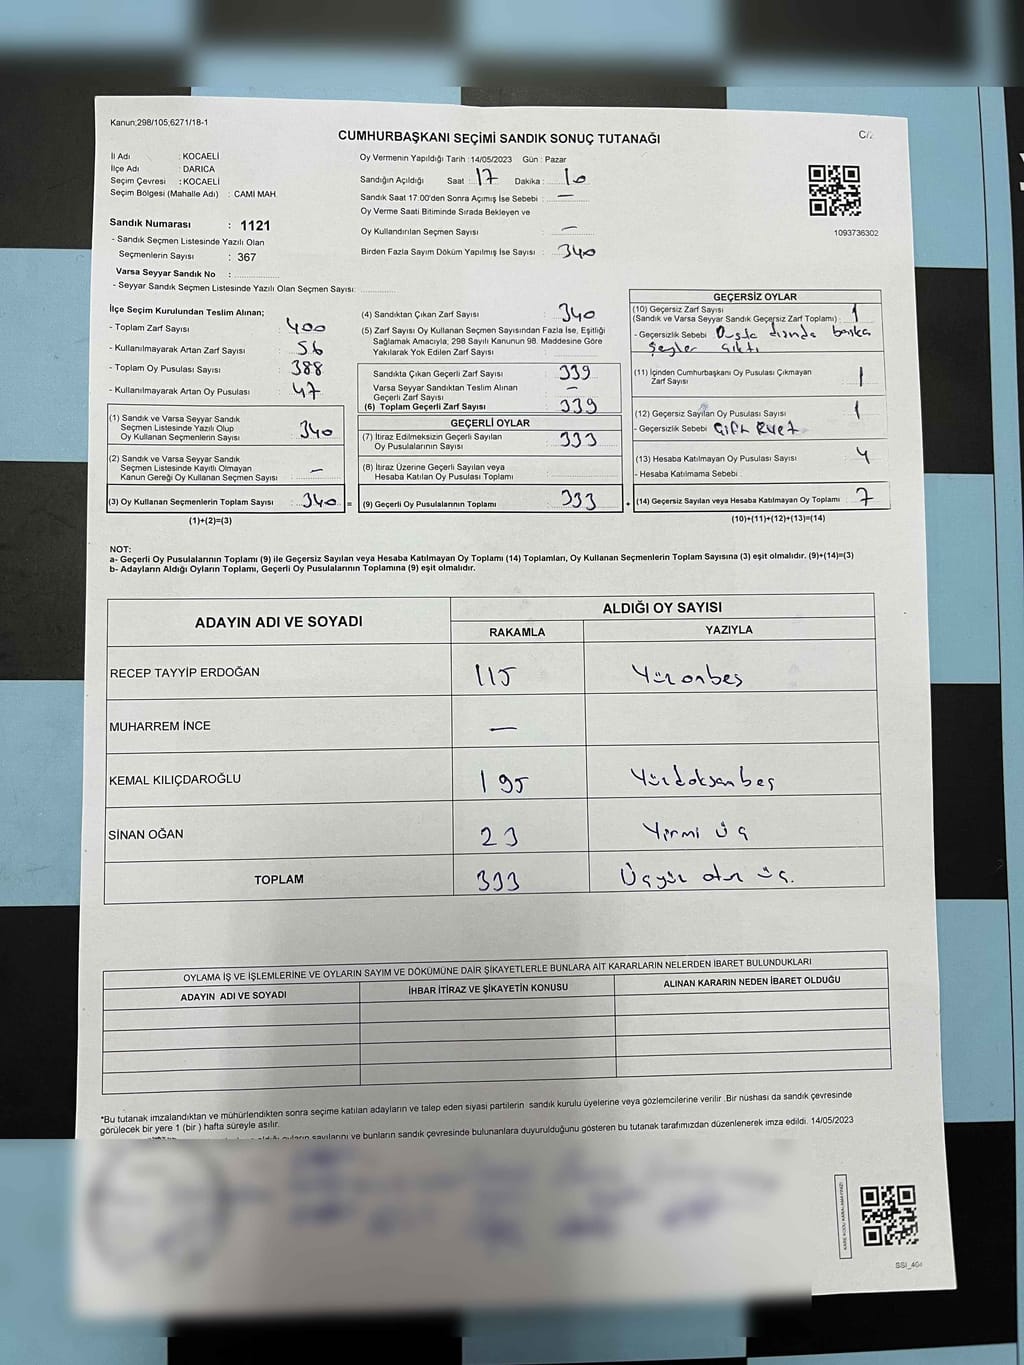 Kanun;298/105,6271/18-1
CUMHURBAŞKANI SEÇİMİ SANDIK SONUÇ TUTANAĞI
İl Adı : KOCAELİ
İlçe Adı : DARICA
Seçim Çevresi : KOCAELİ
Seçim Bölgesi (Mahalle Adı) : CAMİ MAH.
Sandık Numarası : 1121
- Sandık Seçmen Listesinde Yazılı Olan
Seçmenlerin Sayısı : 367
Varsa Seyyar Sandık No :
- Seyyar Sandık Seçmen Listesinde Yazılı Olan Seçmen Sayısı:
Oy Vermenin Yapıldığı Tarih : 14/05/2023 Gün : Pazar
Sandığın Açıldığı Saat : 17 Dakika : 10
Sandık Saat 17:00'den Sonra Açımış İse Sebebi : —
Oy Verme Saati Bitiminde Sırada Bekleyen ve
Oy Kullandırılan Seçmen Sayısı —
Birden Fazla Sayım Döküm Yapılmış İse Sayısı : 340
1093736302
İlçe Seçim Kurulundan Teslim Alınan;
- Toplam Zarf Sayısı : 400
- Kullanılmayarak Artan Zarf Sayısı : 56
- Toplam Oy Pusulası Sayısı : 388
- Kullanılmayarak Artan Oy Pusulası : 47
(1) Sandık ve Varsa Seyyar Sandık
Seçmen Listesinde Yazılı Olup
Oy Kullanan Seçmenlerin Sayısı : 340
(2) Sandık ve Varsa Seyyar Sandık
Seçmen Listesinde Kayıtlı Olmayan
Kanun Gereği Oy Kullanan Seçmen Sayısı : —
(3) Oy Kullanan Seçmenlerin Toplam Sayısı : 340 =
(1)+(2)=(3)
(4) Sandıktan Çıkan Zarf Sayısı : 340
(5) Zarf Sayısı Oy Kullanan Seçmen Sayısından Fazla İse, Eşitliği
Sağlamak Amacıyla, 298 Sayılı Kanunun 98. Maddesine Göre
Yakılarak Yok Edilen Zarf Sayısı :
Sandıkta Çıkan Geçerli Zarf Sayısı : 339
Varsa Seyyar Sandıktan Teslim Alınan
Geçerli Zarf Sayısı : —
(6) Toplam Geçerli Zarf Sayısı : 339
GEÇERLİ OYLAR
(7) İtiraz Edilmeksizin Geçerli Sayılan
Oy Pusulalarının Sayısı : 333
(8) İtiraz Üzerine Geçerli Sayılan veya
Hesaba Katılan Oy Pusulası Toplamı :
(9) Geçerli Oy Pusulalarının Toplamı : 333
GEÇERSİZ OYLAR
(10) Geçersiz Zarf Sayısı
(Sandık ve Varsa Seyyar Sandık Geçersiz Zarf Toplamı) : 1
- Geçersizlik Sebebi dışında başka
şeyler çıktı
(11) İçinden Cumhurbaşkanı Oy Pusulası Çıkmayan
Zarf Sayısı : 1
(12) Geçersiz Sayılan Oy Pusulası Sayısı : 1
- Geçersizlik Sebebi Çift Evet
(13) Hesaba Katılmayan Oy Pusulası Sayısı : 4
- Hesaba Katılmama Sebebi :
(14) Geçersiz Sayılan veya Hesaba Katılmayan Oy Toplamı : 7
(10)+(11)+(12)+(13)=(14)
NOT:
a- Geçerli Oy Pusulalarının Toplamı (9) ile Geçersiz Sayılan veya Hesaba Katılmayan Oy Toplamı (14) Toplamları, Oy Kullanan Seçmenlerin Toplam Sayısına (3) eşit olmalıdır. (9)+(14)=(3)
b- Adayların Aldığı Oyların Toplamı, Geçerli Oy Pusulalarının Toplamına (9) eşit olmalıdır.
ADAYIN ADI VE SOYADI
ALDIĞI OY SAYISI
RAKAMLA YAZIYLA
RECEP TAYYİP ERDOĞAN 115 Yüzonbeş
MUHARREM İNCE —
KEMAL KILIÇDAROĞLU 195 Yüzdoksanbeş
SİNAN OĞAN 23 Yirmi üç
TOPLAM 333 Üçyüz otuz üç.
OYLAMA İŞ VE İŞLEMLERİNE VE OYLARIN SAYIM VE DÖKÜMÜNE DAİR ŞİKAYETLERLE BUNLARA AİT KARARLARIN NELERDEN İBARET BULUNDUKLARI
ADAYIN ADI VE SOYADI İHBAR İTİRAZ VE ŞİKAYETİN KONUSU ALINAN KARARIN NEDEN İBARET OLDUĞU
*Bu tutanak imzalandıktan ve mühürlendikten sonra seçime katılan adayların ve talep eden siyasi partilerin sandık kurulu üyelerine veya gözlemcilerine verilir .Bir nüshası da sandık çevresinde
görülecek bir yere 1 (bir ) hafta süreyle asılır.
sayılarını ve bunların sandık çevresinde bulunanlara duyurulduğunu gösteren bu tutanak tarafımızdan düzenlenerek imza edildi. 14/05/2023